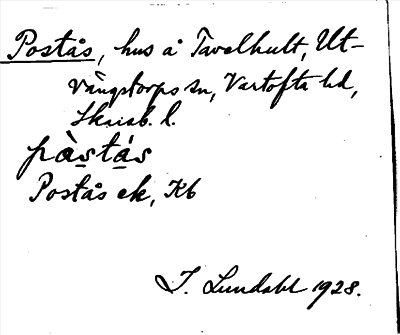 Postås, hus å Tavelhult, Ut-
vängstorps sn, Vartofta hd,
Skarab. l.
pàstás
Postås ek, Kb
I. Lundahl 1928.